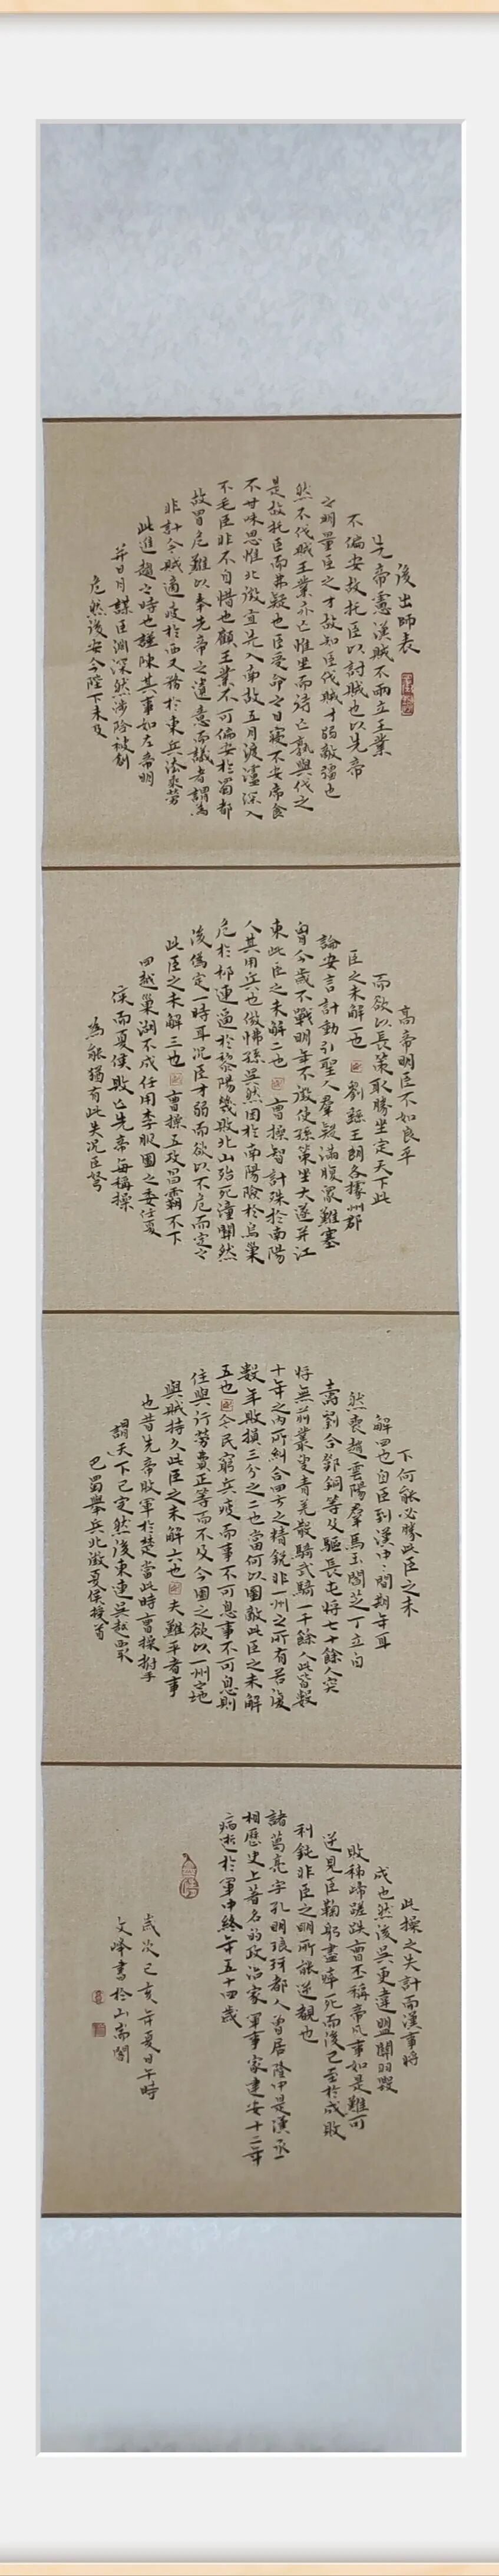 後出師表
先帝慮漢賊不兩立王業
不偏安故託臣以討賊也以先帝
之明量臣之才故知臣伐賊才弱敵彊也
然不伐賊王業亦亡惟坐而待亡孰與伐之
是故託臣而弗疑也臣受命之日寢不安席食
不甘味思惟北徵宜先入南故五月渡瀘深入
不毛臣非不自惜也顧王業不可偏安於蜀都
故冒危難以奉先帝之遺意而議者謂為
非計今賊適疲於西又務於東兵法乘勞
此進趨之時也謹陳其事如左高帝明
并日月謀臣淵深然涉險被創
危然後安今陛下未及
高帝明臣不如良平
而欲以長策取勝坐定天下此
臣之未解一也 劉繇王朗各據州郡
論安言計動引聖人羣疑滿腹眾難塞
胸今歲不戰明年不徵使孫策坐大遂并江
東此臣之未解二也 曹操智計殊於南陽
人其用兵也仿怫孫吳然困於南陽險於烏巢
危於祁連逼於黎陽幾敗北山殆死潼關然
後偽定一時耳況臣才弱而欲以不危而定之
此臣之未解三也 曹操五攻昌霸不下
四越巢湖不成任用李服圖之委任夏
侯而夏侯敗亡先帝每稱操
為能猶有此失況臣駑
下何能必勝此臣之未
解四也自臣到漢中中間期年耳
然喪趙雲陽羣馬玉閻芝丁立白
壽劉合鄧銅等及驅長屯將七十餘人突
將無前叢叟青羌散騎武騎一千餘人此皆數
十年之內所糾合四方之精銳非一州之所有若復
數年敗損三分之二也當何以圖敵此臣之未解
五也 今民窮兵疲而事不可息事不可息則
住與行勞費正等而不及今圖之欲以一州之地
與賊持久此臣之未解六也 夫難平者事
也昔先帝敗軍於楚當此時曹操拊手
謂天下已定然後東連吳越西取
巴蜀舉兵北徵夏侯授首
此操之失計而漢事將
成也然後吳更違盟關羽毀
敗秭歸蹉跌曹丕稱帝凡事如是難可
逆見臣鞠躬盡瘁死而後已至於成敗
利鈍非臣之明所能逆覩也
諸葛亮字孔明琅玡都人曾居隆中是漢丞
相歷史上著名的政治家軍事家建安十二年
病逝於軍中終年五十四歲
歲次己亥年夏日午時
文峰書於山南閣